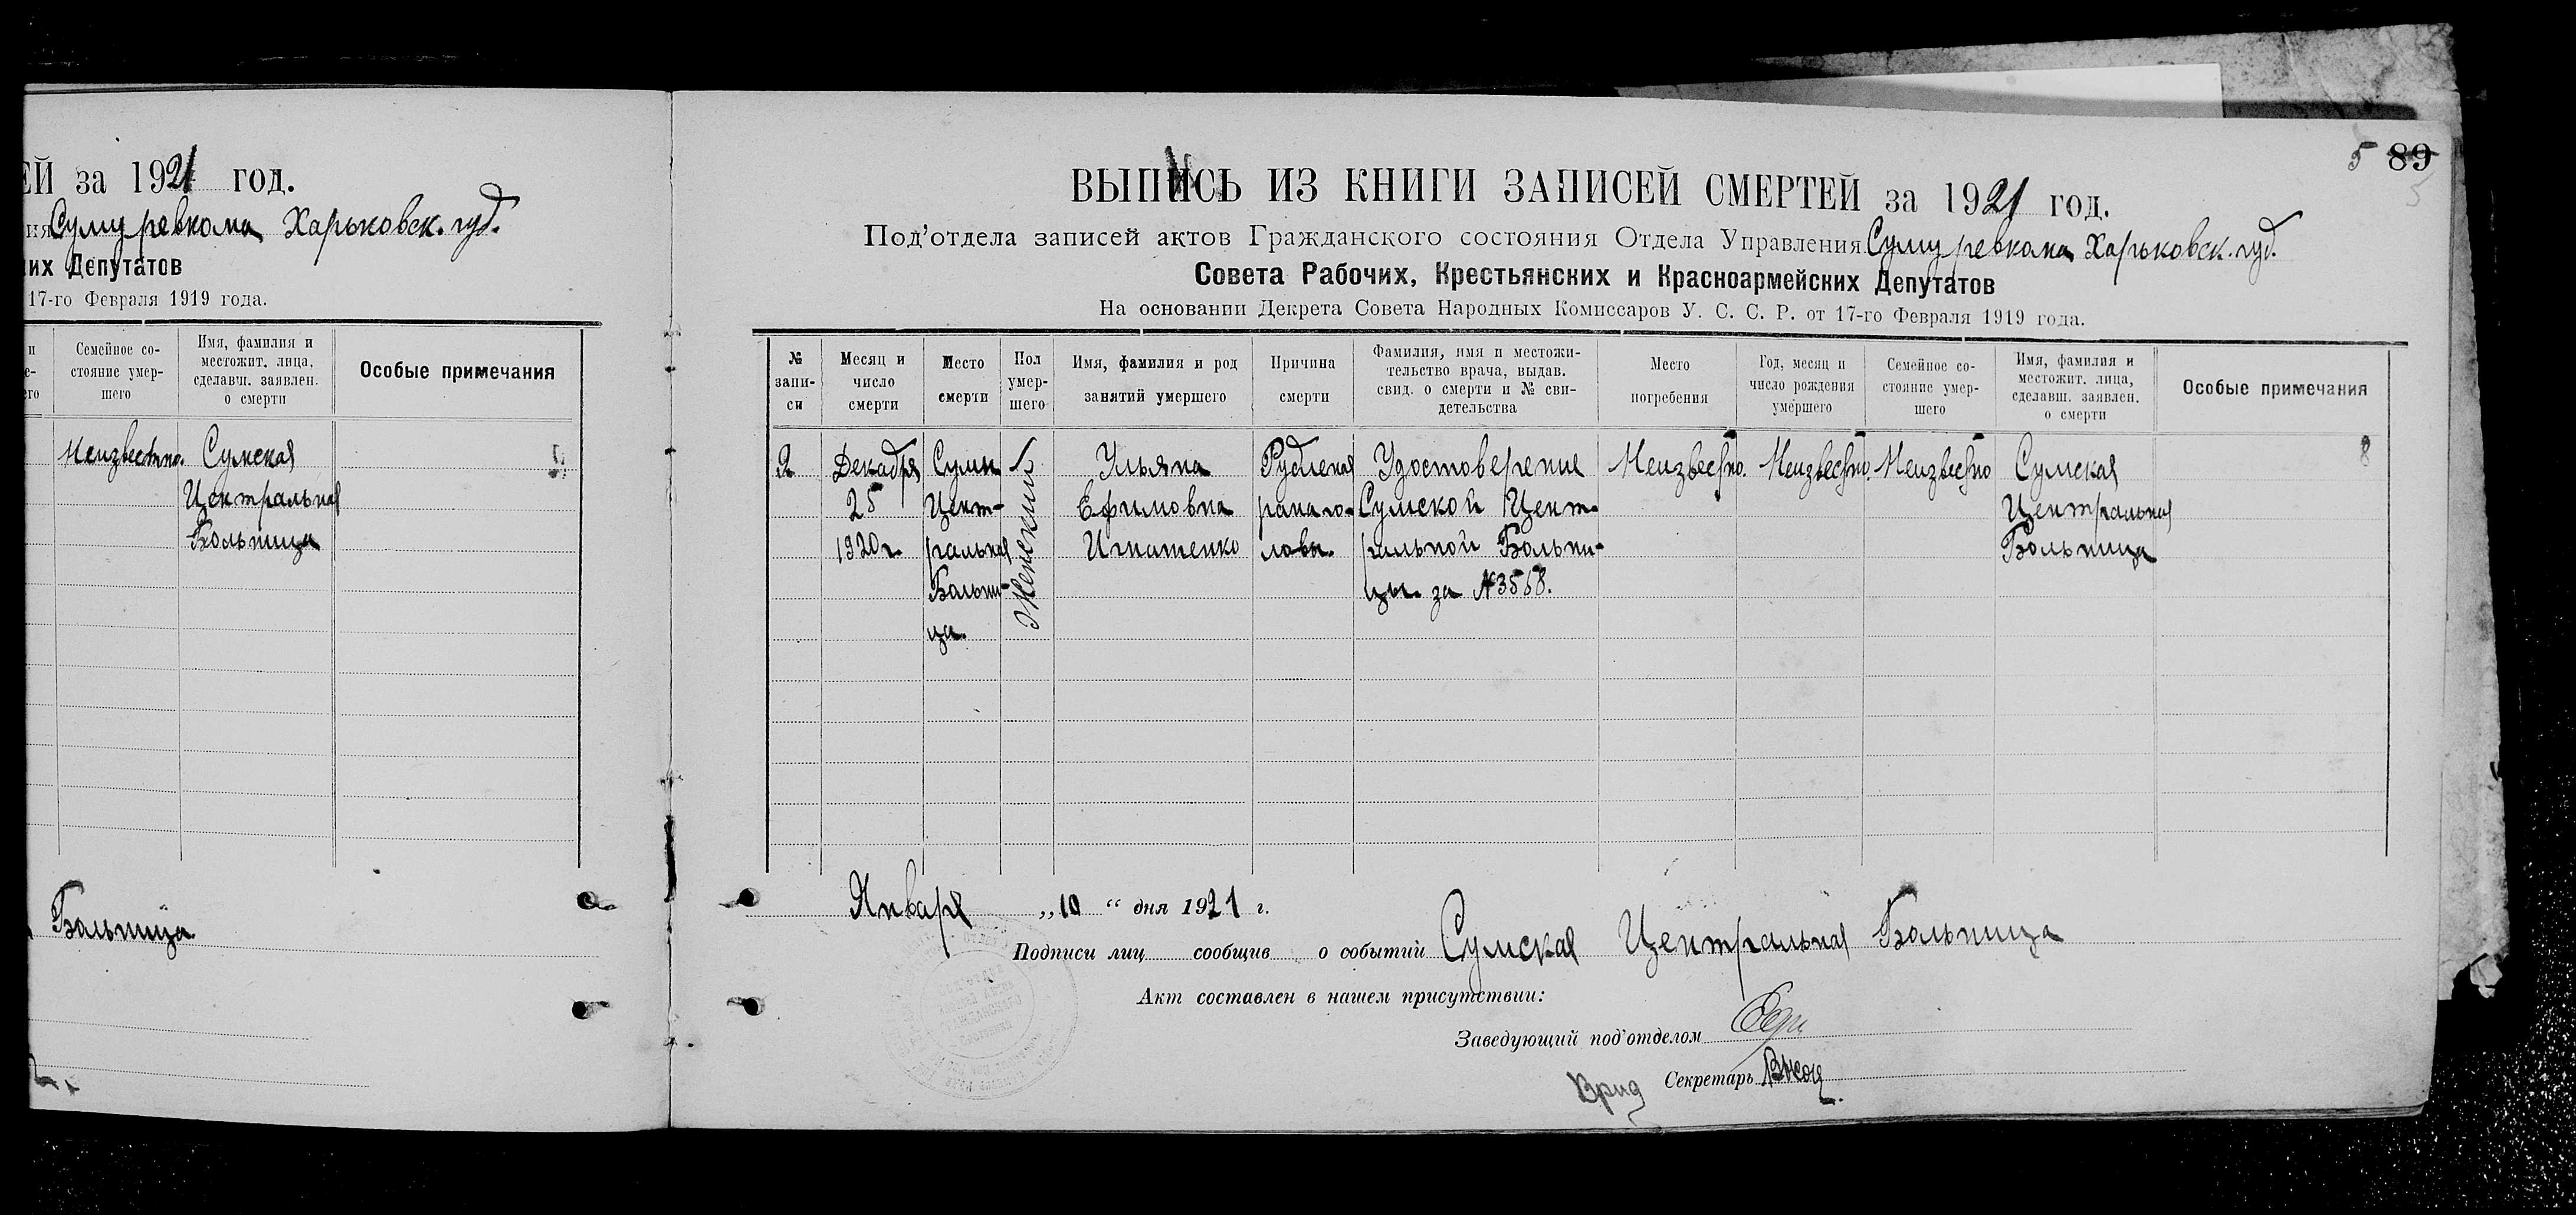 ЕЙ за 1921 год.
ия Сумуревкома Харьковск. губ.
их Депутатов
17-го Февраля 1919 года.
Семейное со-
стояние умер-
шего
Имя, фамилия и
местожит. лица,
сделавш. заявлен.
о смерти
Особые примечания
Неизвестно.
Сумская
Центральная
Больница
Больница
5 89
5
ВЫПИСЬ ИЗ КНИГИ ЗАПИСЕЙ СМЕРТЕЙ за 1921 год.
Под'отдела записей актов Гражданского состояния Отдела Управления Сумуревкома Харьковск. губ.
Совета Рабочих, Крестьянских и Красноармейских Депутатов
На основании Декрета Совета Народных Комиссаров У. С. С. Р. от 17-го Февраля 1919 года.
№
запи-
си
Месяц и
число
смерти
Место
смерти
Пол
умер-
шего
Имя, фамилия и род
занятий умершего
Причина
смерти
Фамилия, имя и местожи-
тельство врача, выдав.
свид. о смерти и № сви-
детельства
Место
погребения
Год, месяц и
число рождения
умершего
Семейное со-
стояние умер-
шего
Имя, фамилия и
местожит. лица,
сделавш. заявлен.
о смерти
Особые примечания
2
Декабря
25
1920 г.
Сумы
Цент-
ральная
Больни-
ца.
Женский
Ульяна
Ефимовна
Игнатенко
Рубленая
рана го-
ловы.
Удостоверение
Сумской Цент-
ральной Больни-
цы за №3568.
Неизвестно.
Неизвестно.
Неизвестно
Сумская
Центральная
Больница
8
Января „10“ дня 1921 г.
Подписи лиц сообщив о событий Сумская Центральная Больница
Акт составлен в нашем присутствии:
Заведующий под'отделом
Врид Секретарь